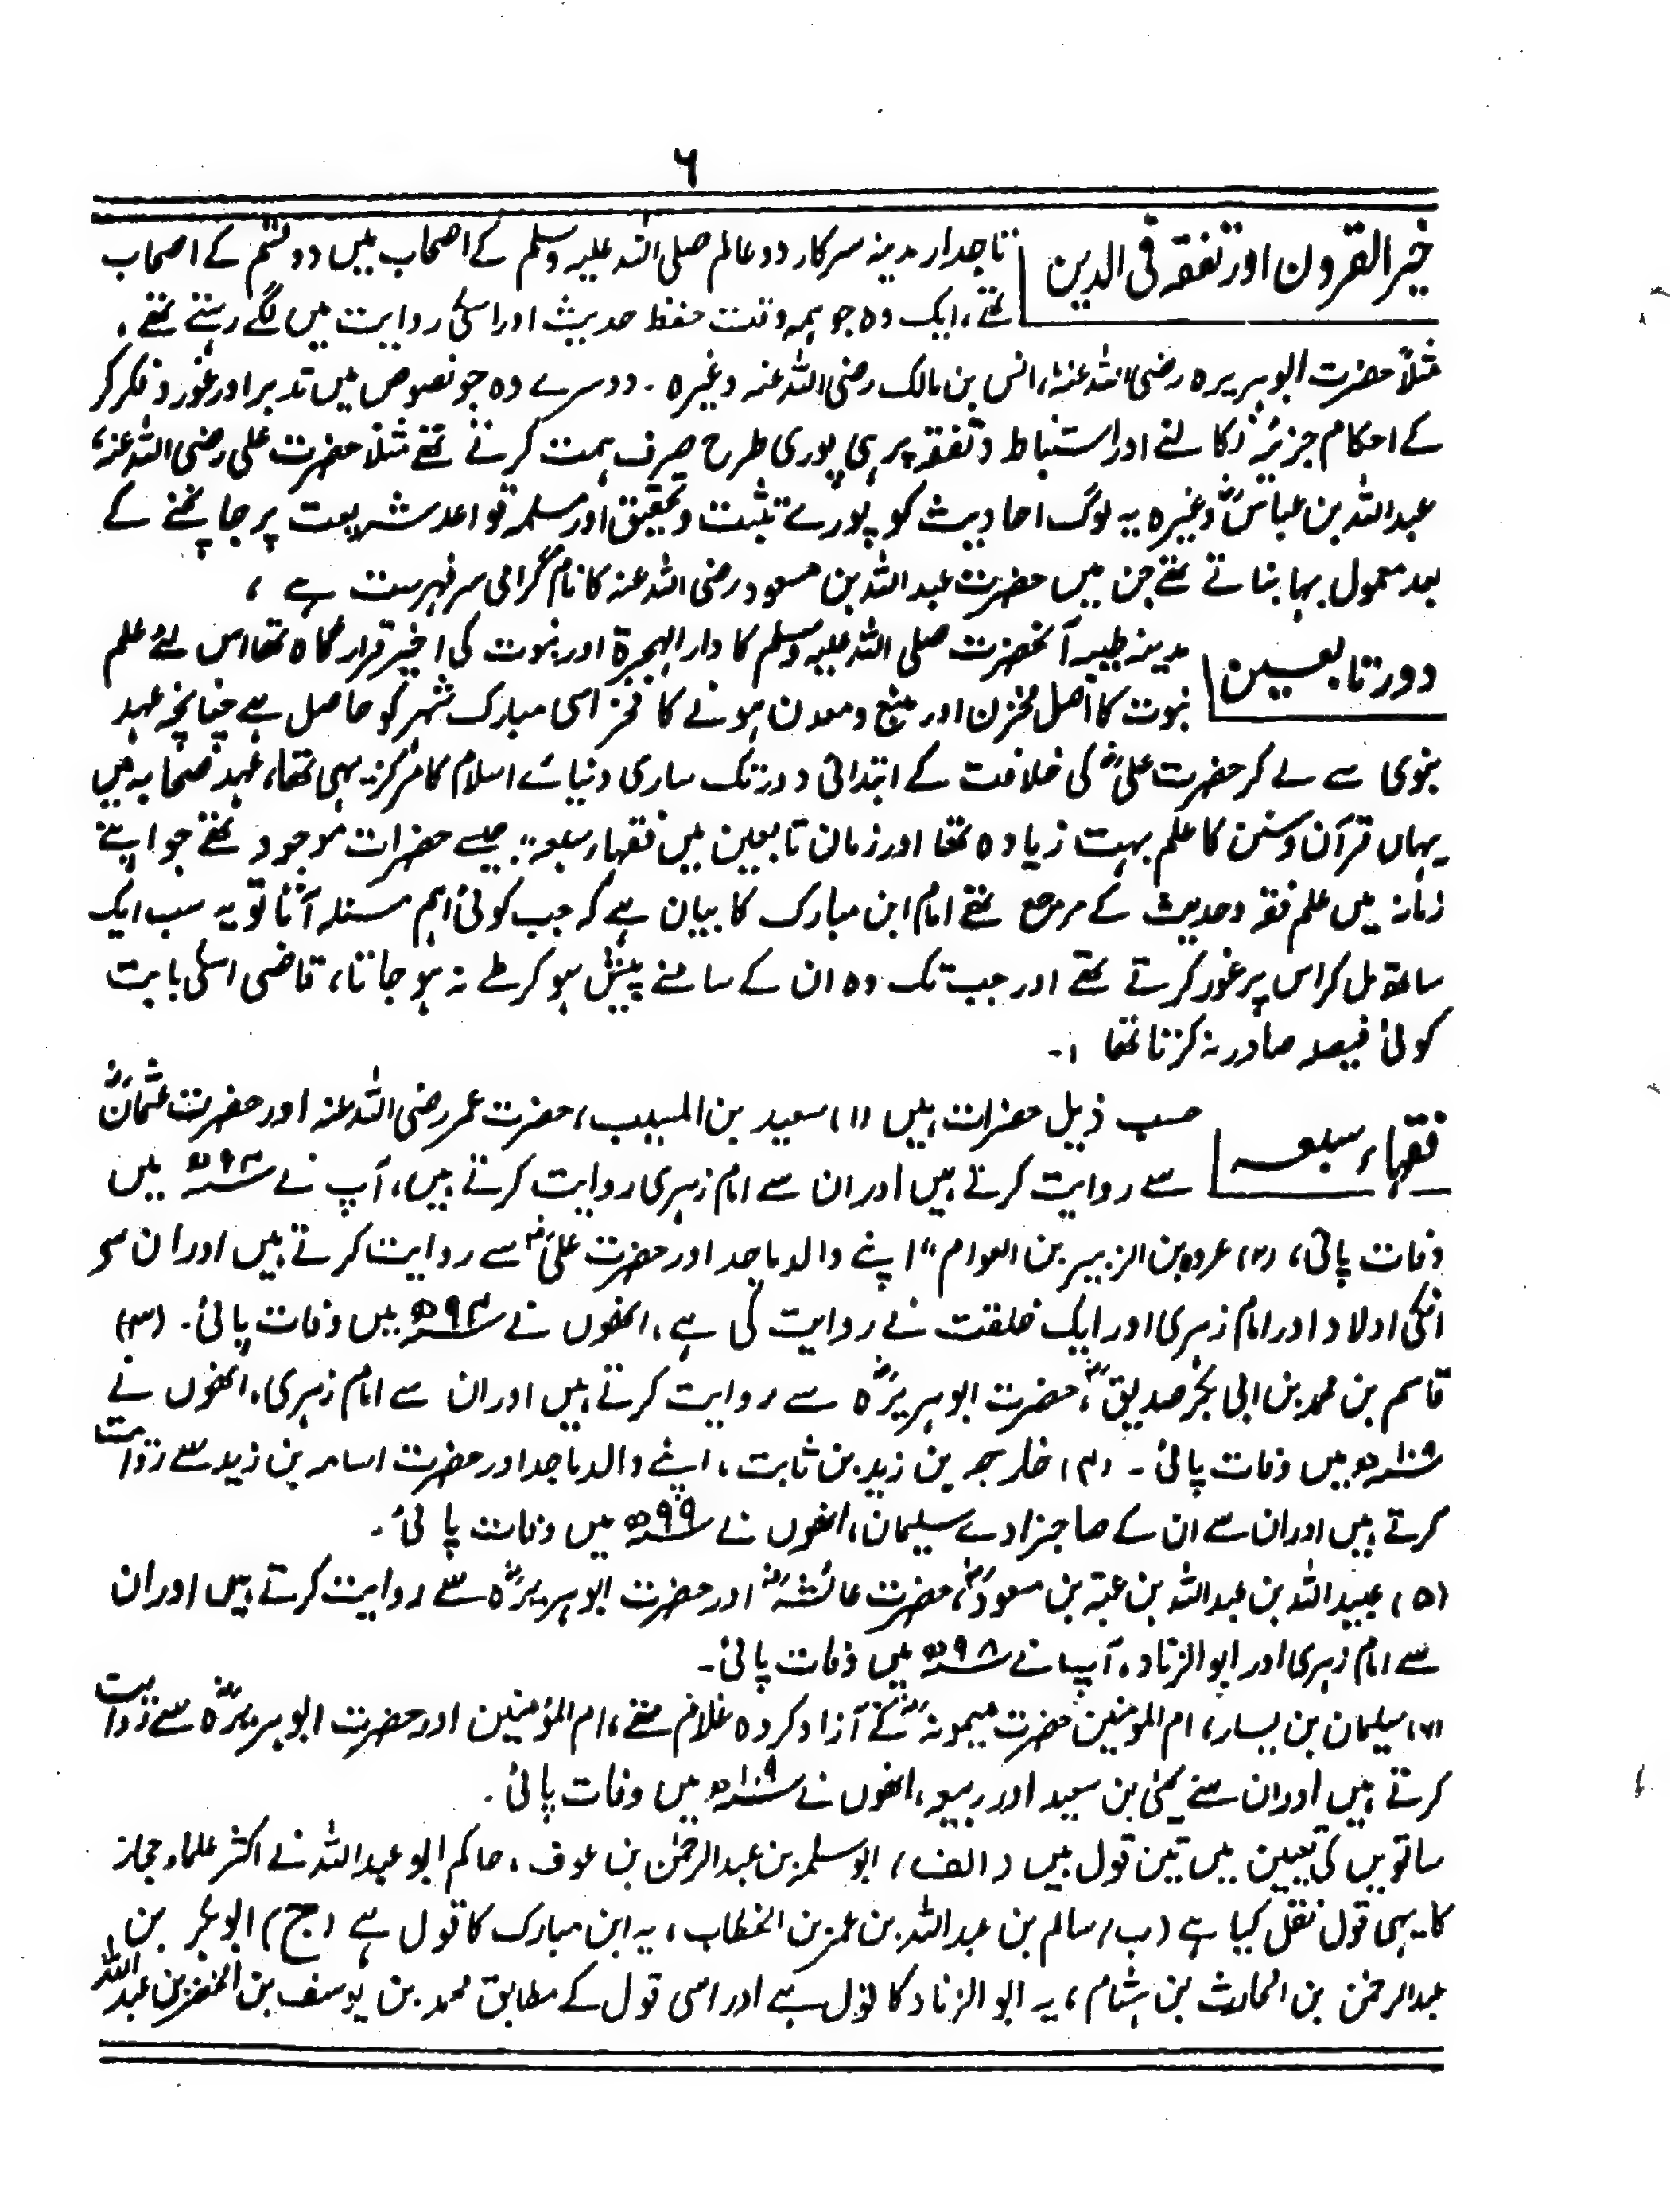 ۶
خیر القرون اور تفقہ فی الدین
تاجدار مدینہ سرکار دو عالم صلی اللہ علیہ وسلم کے اصحاب میں دو قسم کے اصحاب
تھے، ایک وہ جو ہمہ وقت حفظ حدیث اور اسکی روایت میں لگے رہتے تھے،
مثلاً حضرت ابوہریرہ رضی اللہ عنہ، انس بن مالک رضی اللہ عنہ وغیرہ۔ دوسرے وہ جو نصوص میں تدبر اور غور و فکر کر
کے احکام جزئیہ نکالنے اور استنباط و تفقہ پر ہی پوری طرح صرف ہمت کرتے تھے مثلاً حضرت علی رضی اللہ عنہ،
عبداللہ بن عباسؓ وغیرہ یہ لوگ احادیث کو پورے تثبت و تحقیق اور مسلمہ قواعد شریعت پر جانچنے کے
بعد معمول بہا بناتے تھے جن میں حضرت عبداللہ بن مسعود رضی اللہ عنہ کا نام گرامی سر فہرست ہے،
دور تابعین
مدینہ طیبہ آنحضرت صلی اللہ علیہ وسلم کا دار الہجرۃ اور نبوت کی اخیر قرار گاہ تھا اس لئے علم
نبوت کا اصل مخزن اور منبع و معدن ہونے کا فخر اسی مبارک شہر کو حاصل ہے چنانچہ عہد
نبوی سے لے کر حضرت علیؓ کی خلافت کے ابتدائی دور تک ساری دنیائے اسلام کا مرکز یہی تھا، عہد صحابہ میں
یہاں قرآن و سنن کا علم بہت زیادہ تھا اور زمان تابعین میں فقہاء سبعہ جیسے حضرات موجود تھے جو اپنے
زمانہ میں علم فقہ و حدیث کے مرجع تھے امام ابن مبارک کا بیان ہے کہ جب کوئی اہم مسئلہ آتا تو یہ سب ایک
ساتھ مل کر اس پر غور کرتے تھے اور جب تک وہ ان کے سامنے پیش ہو کر طے نہ ہو جاتا، قاضی اسکی بابت
کوئی فیصلہ صادر نہ کرتا تھا ،۔
فقہاء سبعہ
حسب ذیل حضرات ہیں (۱) سعید بن المسیب، حضرت عمر رضی اللہ عنہ اور حضرت عثمانؓ
سے روایت کرتے ہیں اور ان سے امام زہری روایت کرتے ہیں، آپ نے ۹۳ھ میں
وفات پائی، (۲) عروہ بن الزبیر بن العوام" اپنے والد ماجد اور حضرت علیؓ سے روایت کرتے ہیں اور ان سے
انکی اولاد اور امام زہری اور ایک خلقت نے روایت کی ہے، انھوں نے ۹۴ھ میں وفات پائی۔ (۳)
قاسم بن محمد بن ابی بکر صدیقؓ، حضرت ابوہریرہؓ سے روایت کرتے ہیں اور ان سے امام زہری، انھوں نے
میں وفات پائی۔ (۴) خارجہ بن زید بن ثابت، اپنے والد ماجد اور حضرت اسامہ بن زید سے روایت
کرتے ہیں اور ان سے ان کے صاحبزادے سلیمان، انھوں نے ۹۹ھ میں وفات پائی۔
(۵) عبیداللہ بن عبداللہ بن عتبہ بن مسعودؓ، حضرت عائشہؓ اور حضرت ابوہریرہؓ سے روایت کرتے ہیں اور ان
سے امام زہری اور ابو الزناد، آپ نے ۹۸ھ میں وفات پائی۔
(۶) سلیمان بن یسار، ام المومنین حضرت میمونہؓ کے آزاد کردہ غلام تھے، ام المؤمنین اور حضرت ابوہریرہؓ سے روایت
کرتے ہیں اور ان سے یحییٰ بن سعید اور ربیعہ، انھوں نے ۱۰۹ھ میں وفات پائی۔
ساتویں کی تعیین میں تین قول ہیں (الف) ابو سلمہ بن عبدالرحمٰن بن عوف، حاکم ابو عبداللہ نے اکثر علماء حجاز
کا یہی قول نقل کیا ہے (ب) سالم بن عبداللہ بن عمر بن الخطاب، یہ ابن مبارک کا قول ہے (ج) ابوبکر بن
عبدالرحمٰن بن الحارث بن ہشام، یہ ابو الزناد کا قول ہے اور اسی قول کے مطابق محمد بن یوسف بن الخضر بن عبداللہ